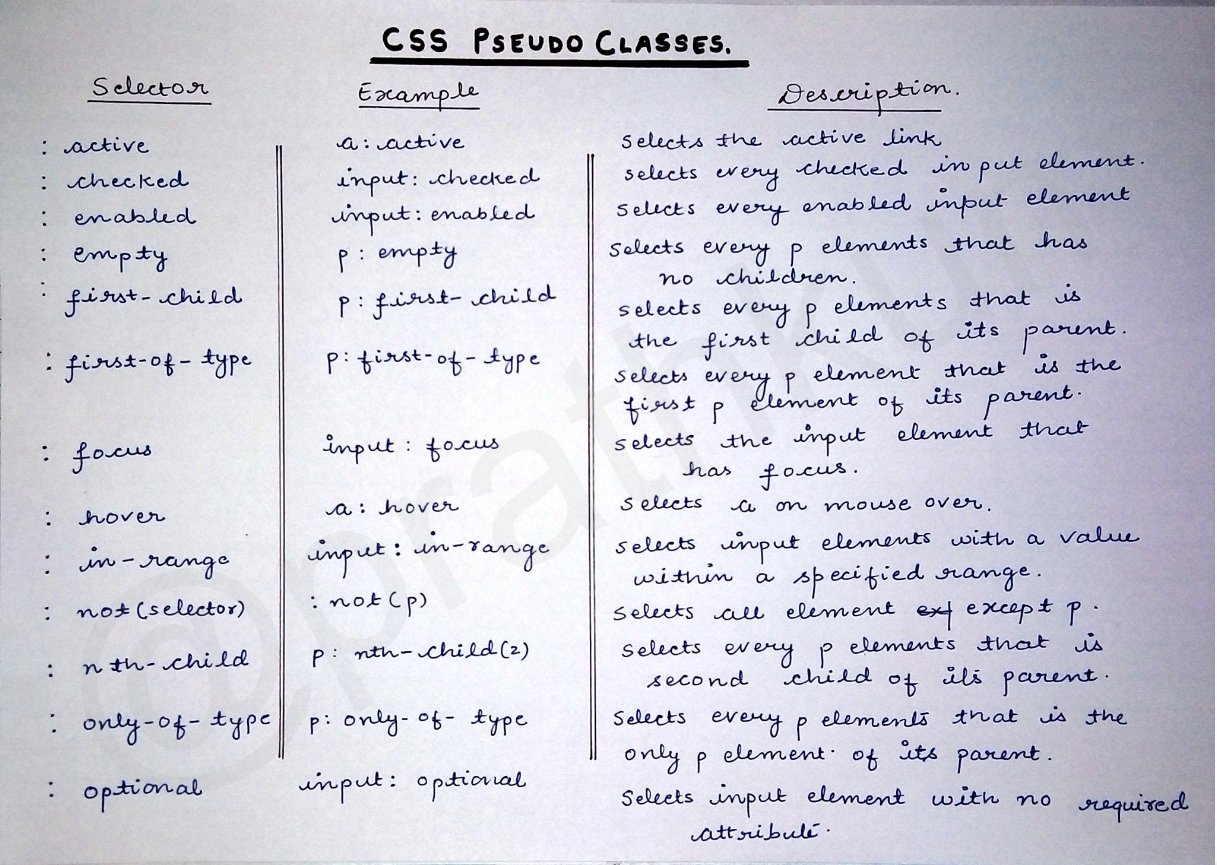 CSS PSEUDO CLASSES.
Selector Example Description.
: active a: active Selects the active link
: checked input: checked selects every checked in put element.
: enabled input: enabled selects every enabled input element
: empty p: empty selects every p elements that has
no children.
: first-child p: first-child selects every p elements that is
the first child of its parent.
: first-of-type p: first-of-type selects every p element that is the
first p element of its parent.
: focus input: focus selects the input element that
has focus.
: hover a: hover selects a on mouse over.
: in-range input: in-range selects input elements with a value
within a specified range.
: not(selector) : not(p) selects all element except p.
: nth-child p: nth-child(2) selects every p elements that is
second child of its parent.
: only-of-type p: only-of-type Selects every p elements that is the
only p element. of its parent.
: optional input: optional Selects input element with no required
attribute.